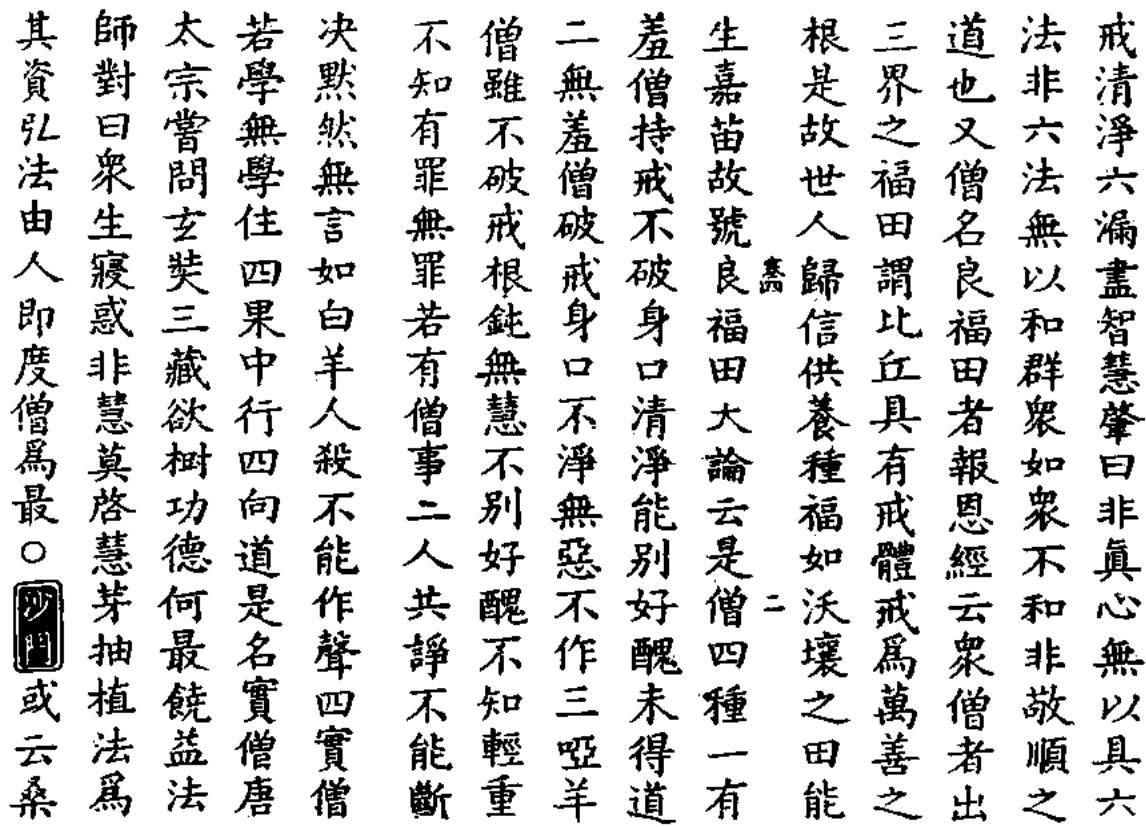 戒清淨六漏盡智慧肇曰非眞心無以具六
法非六法無以和群衆如衆不和非敬順之
道也又僧名良福田者報恩經云衆僧者出
三界之福田謂比丘具有戒體戒爲萬善之
根是故世人歸信供養種福如沃壤之田能
二
生嘉苗故號良福田大論云是僧四種一有
羞僧持戒不破身口清淨能別好醜未得道
二無羞僧破戒身口不淨無惡不作三啞羊
僧雖不破戒根鈍無慧不別好醜不知輕重
不知有罪無罪若有僧事二人共諍不能斷
决默然無言如白羊人殺不能作聲四實僧
若學無學住四果中行四向道是名實僧唐
太宗嘗問玄奘三藏欲樹功德何最饒益法
師對曰衆生寢惑非慧莫啓慧芽抽植法爲
其資弘法由人即度僧爲最○沙門或云桑